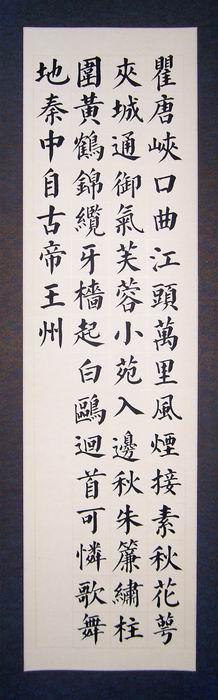 瞿唐峽口曲江頭萬里風煙接素秋花萼
夾城通御氣芙蓉小苑入邊秋朱簾繡柱
圍黃鶴錦纜牙檣起白鷗迴首可憐歌舞
地秦中自古帝王州